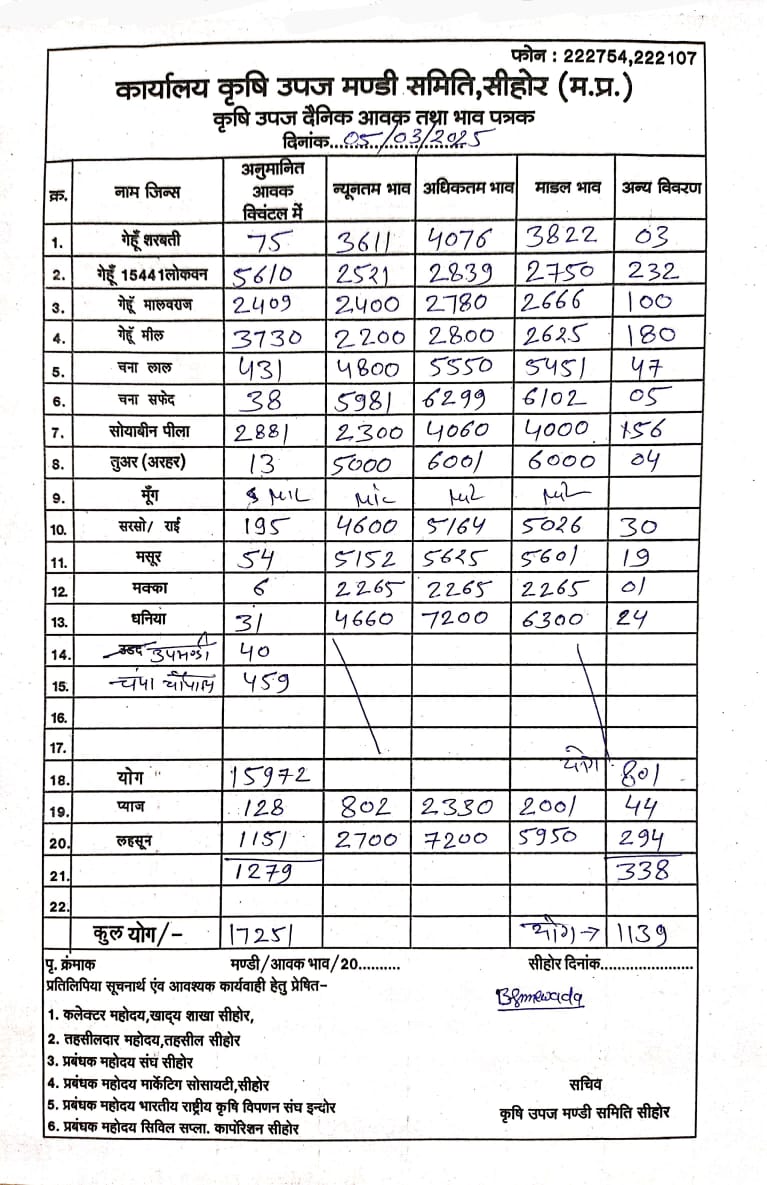 फोन : 222754,222107
कार्यालय कृषि उपज मण्डी समिति,सीहोर (म.प्र.)
कृषि उपज दैनिक आवक तथा भाव पत्रक
दिनांक...05/03/2025
क्र. नाम जिन्स अनुमानित आवक क्विंटल में न्यूनतम भाव अधिकतम भाव माडल भाव अन्य विवरण
1. गेहूँ शरबती 75 3611 4076 3822 03
2. गेहूँ 15441लोकवन 5610 2521 2839 2750 232
3. गेहूँ मालवराज 2409 2400 2780 2666 100
4. गेहूँ मील 3730 2200 2800 2625 180
5. चना लाल 431 4800 5550 5451 47
6. चना सफेद 38 5981 6299 6102 05
7. सोयाबीन पीला 2881 2300 4060 4000 156
8. तुअर (अरहर) 13 5000 6001 6000 04
9. मूँग NIL NIL NIL NIL
10. सरसो/ राई 195 4600 5164 5026 30
11. मसूर 54 5152 5625 5601 19
12. मक्का 6 2265 2265 2265 01
13. धनिया 31 4660 7200 6300 24
14. उडद उपमण्डी 40
15. चौपाल 459
16.
17.
18. योग 15972 योग 801
19. प्याज 128 802 2330 2001 44
20. लहसून 1151 2700 7200 5950 294
21. 1279 338
22.
कुल योग/- 17251 योग → 1139
पृ. क्रंमाक मण्डी/आवक भाव/20.......... सीहोर दिनांक.......................
प्रतिलिपिया सूचनार्थ एंव आवश्यक कार्यवाही हेतु प्रेषित-
1. कलेक्टर महोदय,खाद्य शाखा सीहोर,
2. तहसीलदार महोदय,तहसील सीहोर
3. प्रबंधक महोदय संघ सीहोर
4. प्रबंधक महोदय मार्केटिग सोसायटी,सीहोर
सचिव
5. प्रबंधक महोदय भारतीय राष्ट्रीय कृषि विपणन संघ इन्दोर
कृषि उपज मण्डी समिति सीहोर
6. प्रबंधक महोदय सिविल सप्ला. कार्पोरेशन सीहोर